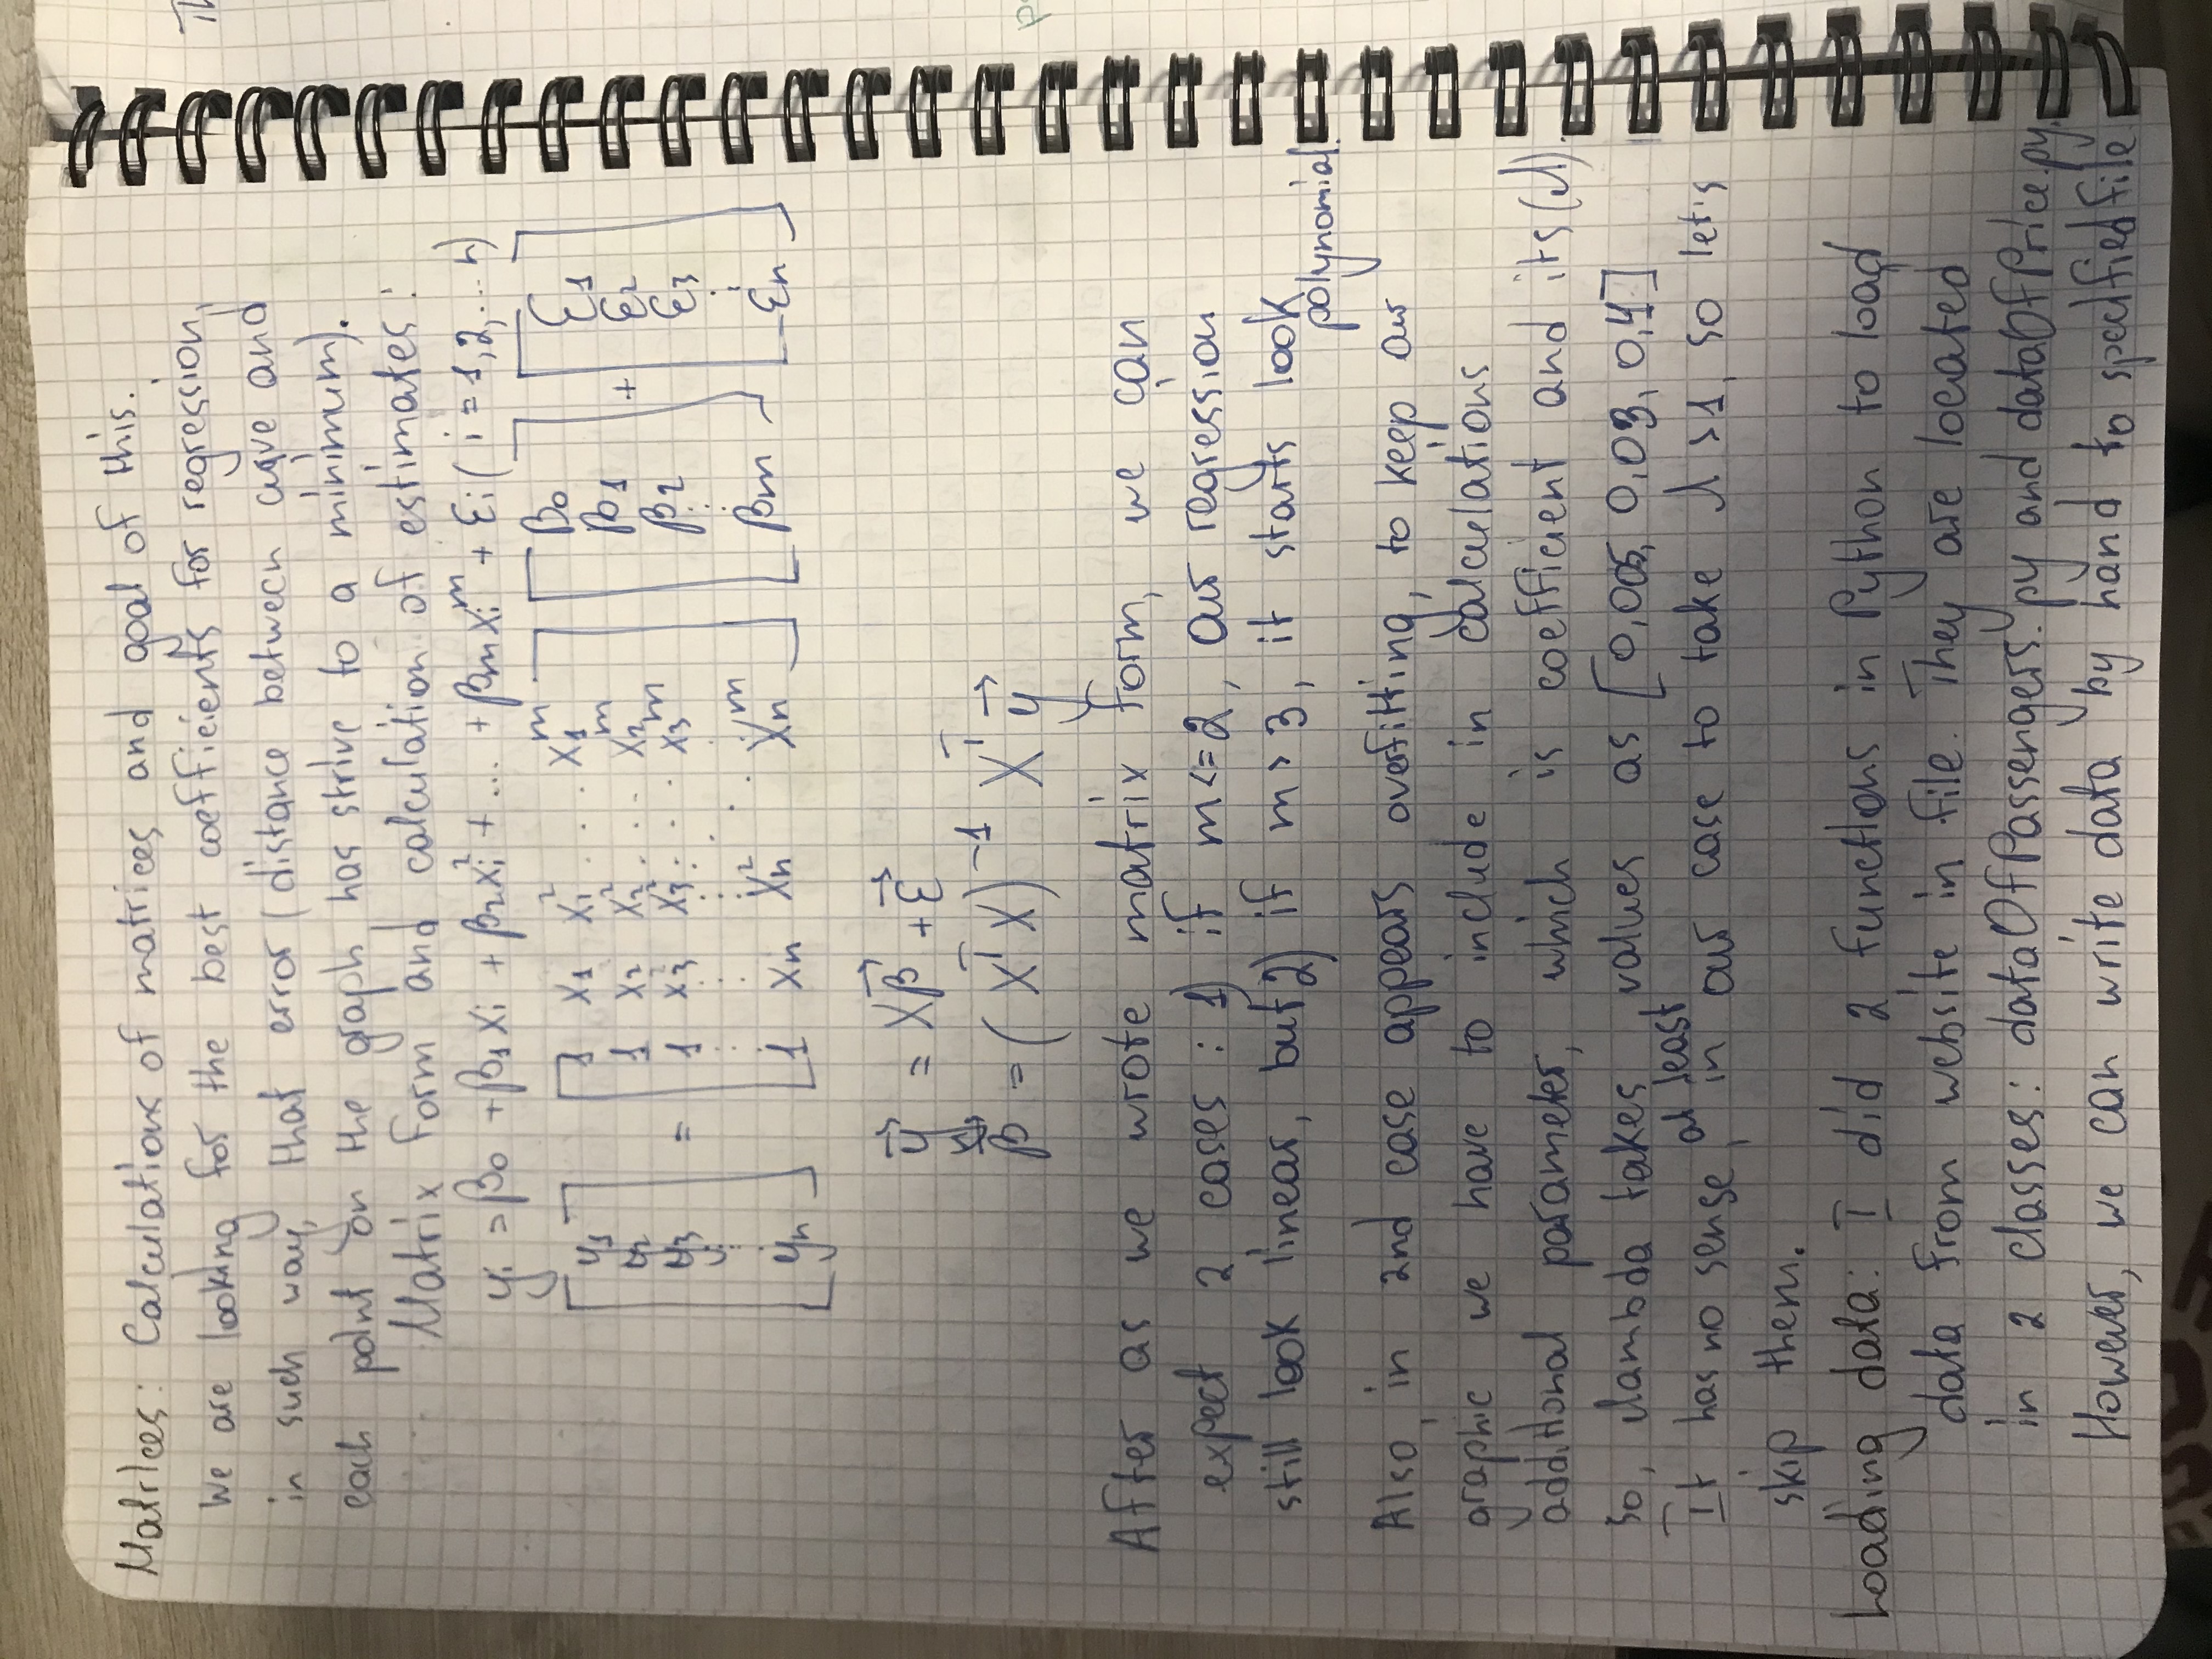 Matrices: Calculations of matrices and goal of this.
We are looking for the best coefficients for regression,
in such way, that error (distance between curve and
each point on the graph has strive to a minimum).
Matrix form and calculation of estimates:
yi = β0 + β1xi + β2xi² + ... + βmxi^m + εi (i = 1,2,...n)
[y1 y2 y3 ⋮ yn] = [1 x1 x1² ... x1^m
1 x2 x2² ... x2^m
1 x3 x3² ... x3^m
⋮ ⋮ ⋮ ⋱ ⋮
1 xn xn² xn^m] [β0 β1 β2 ⋮ βm] + [ε1 ε2 ε3 ⋮ εn]
y⃗ = Xβ⃗ + ε⃗
β⃗ = (X^T X)^-1 X^T y⃗
After as we wrote matrix form, we can
expect 2 cases: 1) if m<=2, our regression
still look linear, but 2) if m > 3, it starts look
polynomial.
Also, in 2nd case appears overfitting, to keep our
graphic we have to include in calculations
additional parameter, which is coefficient and its (λ).
So, lambda takes values as [0,005, 0,03, 0,4]
It has no sense, at least in our case to take λ > 1, so let's
skip them.
Loading data: I did 2 functions in Python to load
data from website in file. They are located
in 2 classes: dataOfPassengers.py and dataOfPrice.py.
However, we can write data by hand to specified file
Th